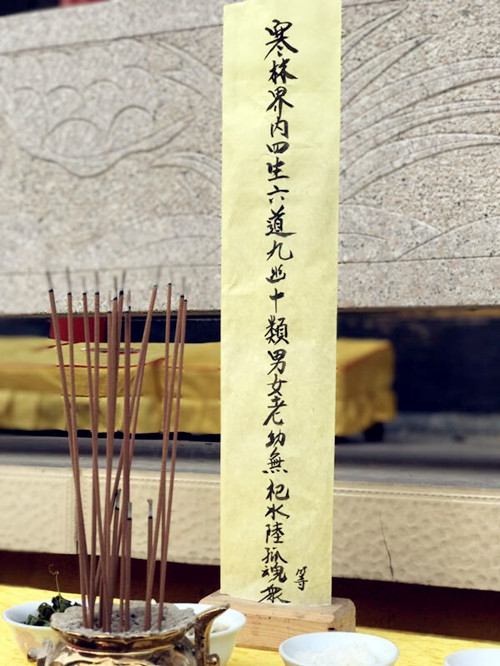 寒林界内四生六道九丠十類男女老幼無杞水陸孤魂衆
等